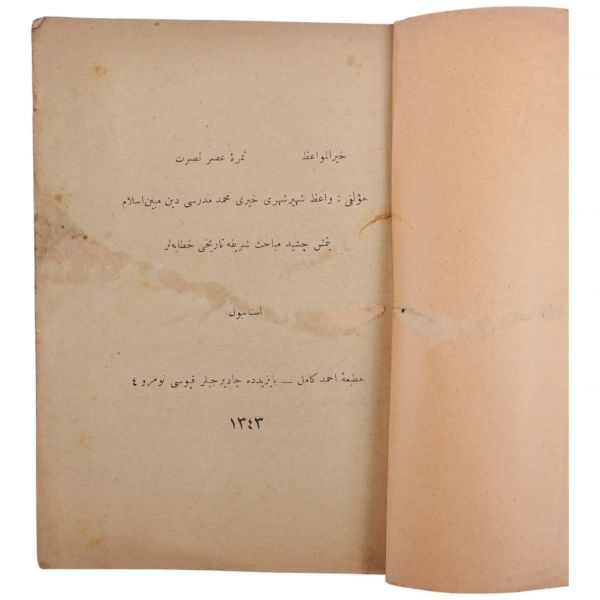 خيرالمواعظ ثمرۀ عصر نصرت
مؤلفى : واعظ شهير شهرى خيرى محمد مدرسى دين مبين اسلام
يتمش چشيد مباحث شريفه تاريخى خطابه‌لر
استانبول
مطبعۀ احمد كامل — بايزيدده چاديرجيلر قپوسى نومرو ٤
١٣٤٣